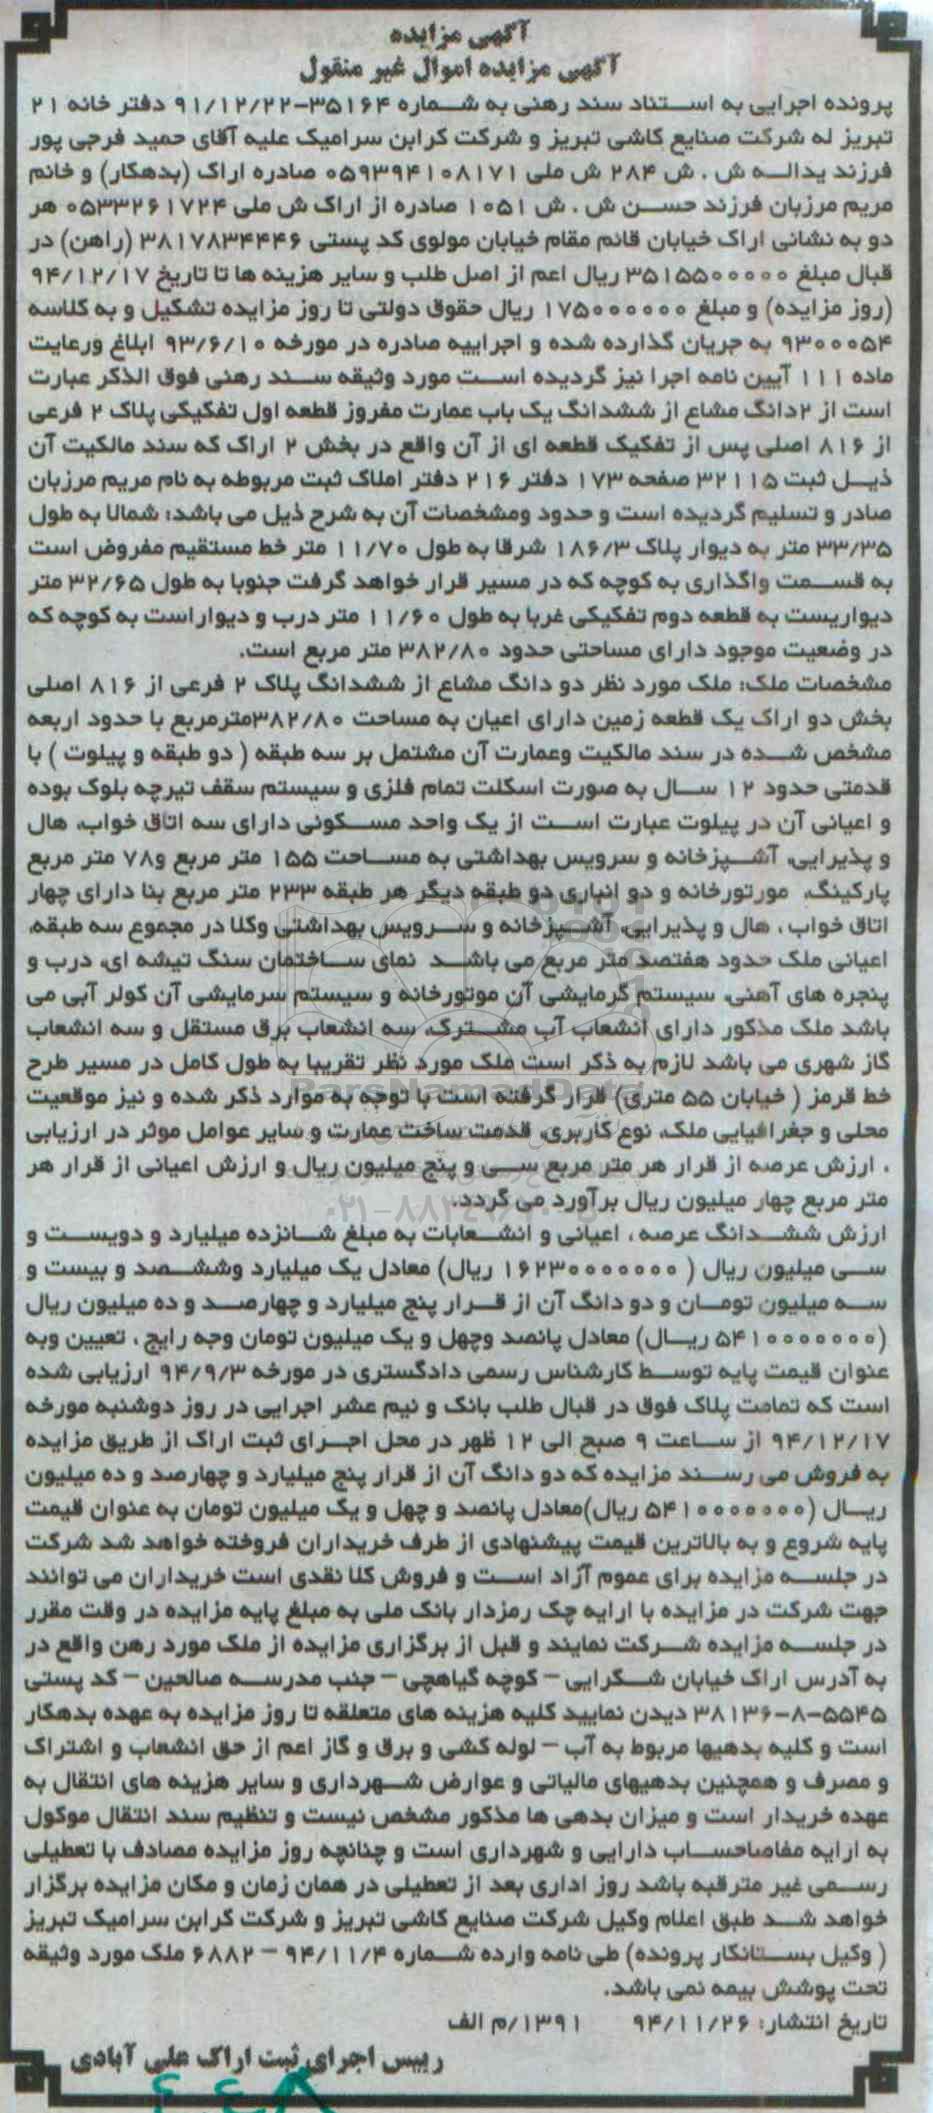 آگهی مزایده
آگهی مزایده اموال غیر منقول
پرونده اجرایی به استناد سند رهنی به شماره ۳۵۱۶۴-۹۱/۱۲/۲۲ دفتر خانه ۲۱
تبریز له شرکت صنایع کاشی تبریز و شرکت کرابن سرامیک علیه آقای حمید فرجی پور
فرزند یداله ش . ش ۲۸۴ ش ملی ۰۵۹۳۹۴۱۰۸۱۷۱ صادره اراک (بدهکار) و خانم
مریم مرزبان فرزند حسن ش . ش ۱۰۵۱ صادره از اراک ش ملی ۰۵۳۳۲۶۱۷۲۴ هر
دو به نشانی اراک خیابان قائم مقام خیابان مولوی کد پستی ۳۸۱۷۸۳۴۴۴۶ (راهن) در
قبال مبلغ ۳۵۱۵۵۰۰۰۰۰ ریال اعم از اصل طلب و سایر هزینه ها تا تاریخ ۹۴/۱۲/۱۷
(روز مزایده) و مبلغ ۱۷۵۰۰۰۰۰۰ ریال حقوق دولتی تا روز مزایده تشکیل و به کلاسه
۹۳۰۰۰۵۴ به جریان گذارده شده و اجراییه صادره در مورخه ۹۳/۶/۱۰ ابلاغ ورعایت
ماده ۱۱۱ آیین نامه اجرا نیز گردیده است مورد وثیقه سند رهنی فوق الذکر عبارت
است از ۲دانگ مشاع از ششدانگ یک باب عمارت مفروز قطعه اول تفکیکی پلاک ۲ فرعی
از ۸۱۶ اصلی پس از تفکیک قطعه ای از آن واقع در بخش ۲ اراک که سند مالکیت آن
ذیل ثبت ۳۲۱۱۵ صفحه ۱۷۳ دفتر ۲۱۶ دفتر املاک ثبت مربوطه به نام مریم مرزبان
صادر و تسلیم گردیده است و حدود ومشخصات آن به شرح ذیل می باشد: شمالا به طول
۳۳/۳۵ متر به دیوار پلاک ۱۸۶/۳ شرقا به طول ۱۱/۷۰ متر خط مستقیم مفروض است
به قسمت واگذاری به کوچه که در مسیر قرار خواهد گرفت جنوبا به طول ۳۲/۶۵ متر
دیواریست به قطعه دوم تفکیکی غربا به طول ۱۱/۶۰ متر درب و دیوار است به کوچه که
در وضعیت موجود دارای مساحتی حدود ۳۸۲/۸۰ متر مربع است.
مشخصات ملک: ملک مورد نظر دو دانگ مشاع از ششدانگ پلاک ۲ فرعی از ۸۱۶ اصلی
بخش دو اراک یک قطعه زمین دارای اعیان به مساحت ۳۸۲/۸۰مترمربع با حدود اربعه
مشخص شده در سند مالکیت وعمارت آن مشتمل بر سه طبقه ( دو طبقه و پیلوت ) با
قدمتی حدود ۱۲ سال به صورت اسکلت تمام فلزی و سیستم سقف تیرچه بلوک بوده
و اعیانی آن در پیلوت عبارت است از یک واحد مسکونی دارای سه اتاق خواب، هال
و پذیرایی، آشپزخانه و سرویس بهداشتی به مساحت ۱۵۵ متر مربع و۷۸ متر مربع
پارکینگ، مورتورخانه و دو انباری دو طبقه دیگر هر طبقه ۲۳۳ متر مربع بنا دارای چهار
اتاق خواب ، هال و پذیرایی، آشپزخانه و سرویس بهداشتی وکلا در مجموع سه طبقه،
اعیانی ملک حدود هفتصد متر مربع می باشد نمای ساختمان سنگ تیشه ای، درب و
پنجره های آهنی، سیستم گرمایشی آن موتورخانه و سیستم سرمایشی آن کولر آبی می
باشد ملک مذکور دارای انشعاب آب مشترک، سه انشعاب برق مستقل و سه انشعاب
گاز شهری می باشد لازم به ذکر است ملک مورد نظر تقریبا به طول کامل در مسیر طرح
خط قرمز ( خیابان ۵۵ متری) قرار گرفته است با توجه به موارد ذکر شده و نیز موقعیت
محلی و جغرافیایی ملک، نوع کاربری، قدمت ساخت عمارت و سایر عوامل موثر در ارزیابی
، ارزش عرصه از قرار هر متر مربع سی و پنج میلیون ریال و ارزش اعیانی از قرار هر
متر مربع چهار میلیون ریال برآورد می گردد.
ارزش ششدانگ عرصه ، اعیانی و انشعابات به مبلغ شانزده میلیارد و دویست و
سی میلیون ریال ( ۱۶۲۳۰۰۰۰۰۰۰ ریال) معادل یک میلیارد وششصد و بیست و
سه میلیون تومان و دو دانگ آن از قرار پنج میلیارد و چهارصد و ده میلیون ریال
(۵۴۱۰۰۰۰۰۰۰ ریال) معادل پانصد وچهل و یک میلیون تومان وجه رایج ، تعیین وبه
عنوان قیمت پایه توسط کارشناس رسمی دادگستری در مورخه ۹۴/۹/۳ ارزیابی شده
است که تمامت پلاک فوق در قبال طلب بانک و نیم عشر اجرایی در روز دوشنبه مورخه
۹۴/۱۲/۱۷ از ساعت ۹ صبح الی ۱۲ ظهر در محل اجرای ثبت اراک از طریق مزایده
به فروش می رسند مزایده که دو دانگ آن از قرار پنج میلیارد و چهارصد و ده میلیون
ریال (۵۴۱۰۰۰۰۰۰۰ ریال)معادل پانصد و چهل و یک میلیون تومان به عنوان قیمت
پایه شروع و به بالاترین قیمت پیشنهادی از طرف خریداران فروخته خواهد شد شرکت
در جلسه مزایده برای عموم آزاد است و فروش کلا نقدی است خریداران می توانند
جهت شرکت در مزایده با ارایه چک رمزدار بانک ملی به مبلغ پایه مزایده در وقت مقرر
در جلسه مزایده شرکت نمایند و قبل از برگزاری مزایده از ملک مورد رهن واقع در
به آدرس اراک خیابان شکرایی – کوچه گیاهچی – جنب مدرسه صالحین – کد پستی
۳۸۱۳۶-۸-۵۵۴۵ دیدن نمایید کلیه هزینه های متعلقه تا روز مزایده به عهده بدهکار
است و کلیه بدهیها مربوط به آب – لوله کشی و برق و گاز اعم از حق انشعاب و اشتراک
و مصرف و همچنین بدهیهای مالیاتی و عوارض شهرداری و سایر هزینه های انتقال به
عهده خریدار است و میزان بدهی ها مذکور مشخص نیست و تنظیم سند انتقال موکول
به ارایه مفاصاحساب دارایی و شهرداری است و چنانچه روز مزایده مصادف با تعطیلی
رسمی غیر مترقبه باشد روز اداری بعد از تعطیلی در همان زمان و مکان مزایده برگزار
خواهد شد طبق اعلام وکیل شرکت صنایع کاشی تبریز و شرکت کرابن سرامیک تبریز
( وکیل بستانکار پرونده) طی نامه وارده شماره ۹۴/۱۱/۴ – ۶۸۸۲ ملک مورد وثیقه
تحت پوشش بیمه نمی باشد.
تاریخ انتشار: ۹۴/۱۱/۲۶ ۱۳۹۱/م الف
رییس اجرای ثبت اراک علی آبادی
ParsNamadData
۰۲۱-۸۸۳۴۹۶۷۰